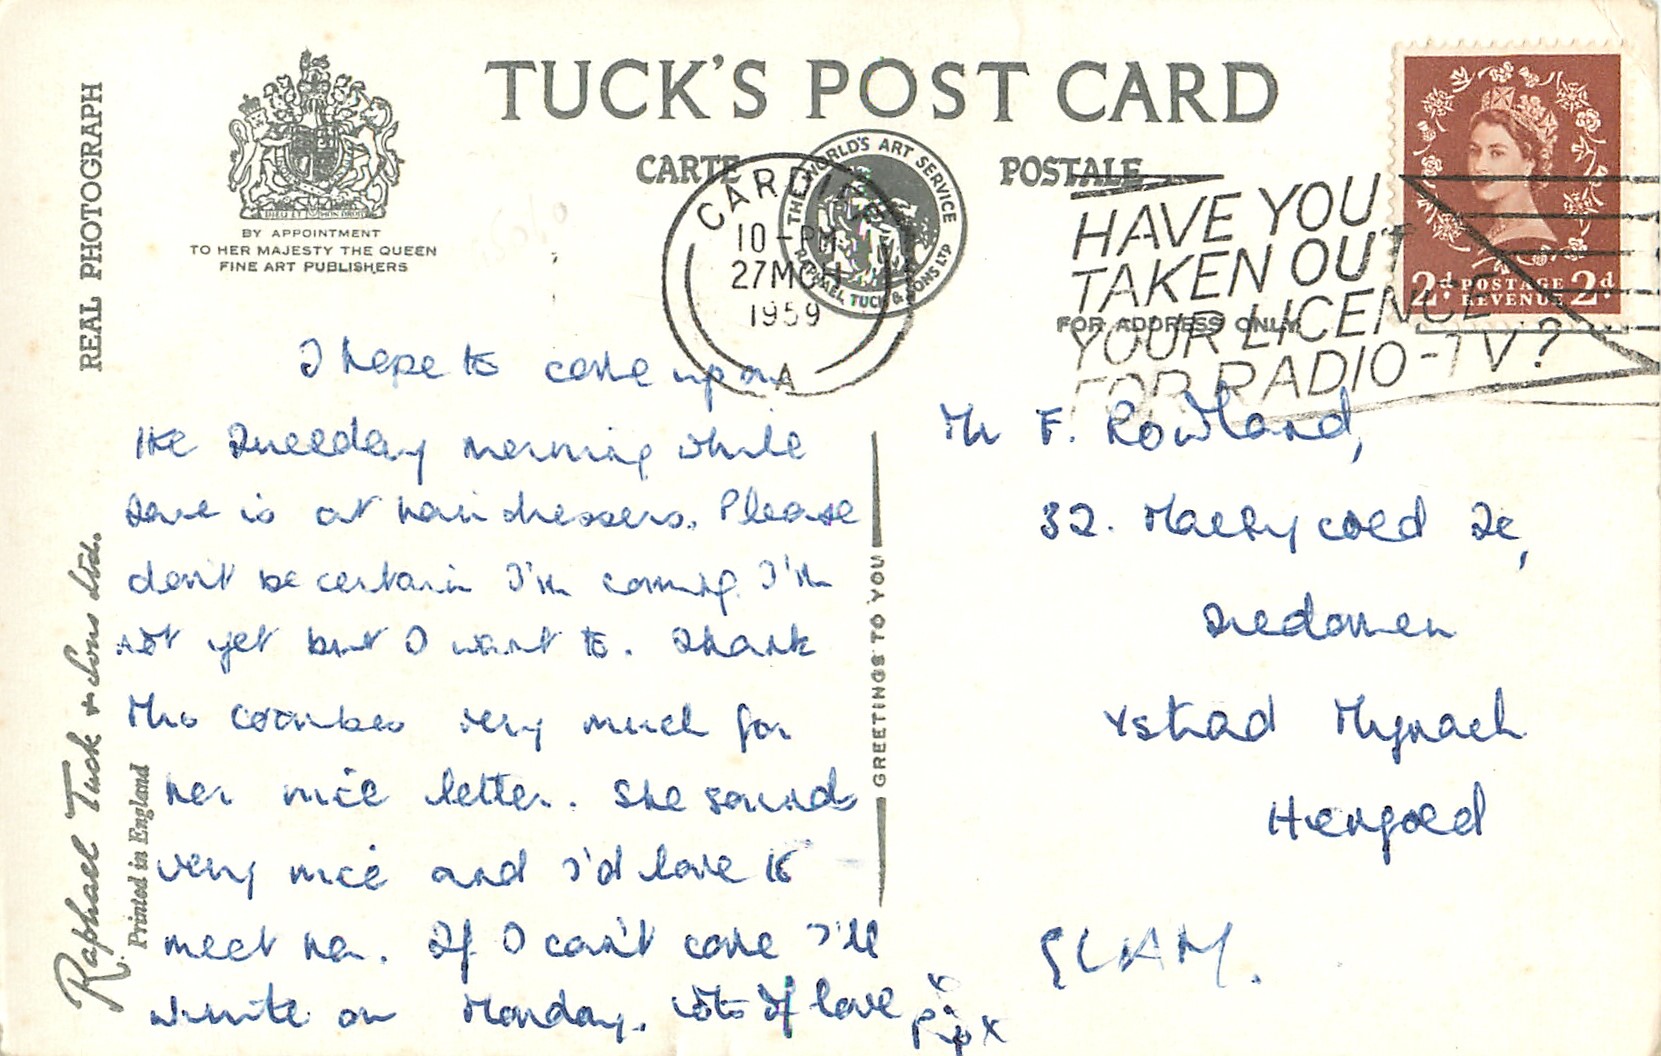 TUCK'S POST CARD
CARTE POSTALE
REAL PHOTOGRAPH
DIEU ET MON DROIT
BY APPOINTMENT
TO HER MAJESTY THE QUEEN
FINE ART PUBLISHERS
THE WORLD'S ART SERVICE
RAPHAEL TUCK & SONS LTD
CARDIFF
10 - PM
27 MCH
1959
A
HAVE YOU
TAKEN OUT
YOUR LICENCE
FOR RADIO-TV?
2d POSTAGE REVENUE 2d
FOR ADDRESS ONLY
I hope to come up on
the Tuesday morning while
is at hairdressers. Please
don't be certain I'm coming I'm
not yet but I want to. Thank
Mrs Coombes very much for
her nice letter. She sound
very nice and I'd love to
meet her. If I can't come I'll
write on Monday. Lots of love
Pip x
GREETINGS TO YOU
Mr F. Rowland,
32. Maesycoed Te,
Tredomen
Ystrad Mynach
Hengoed
GLAM.
Raphael Tuck & Sons Ltd.
Printed in England